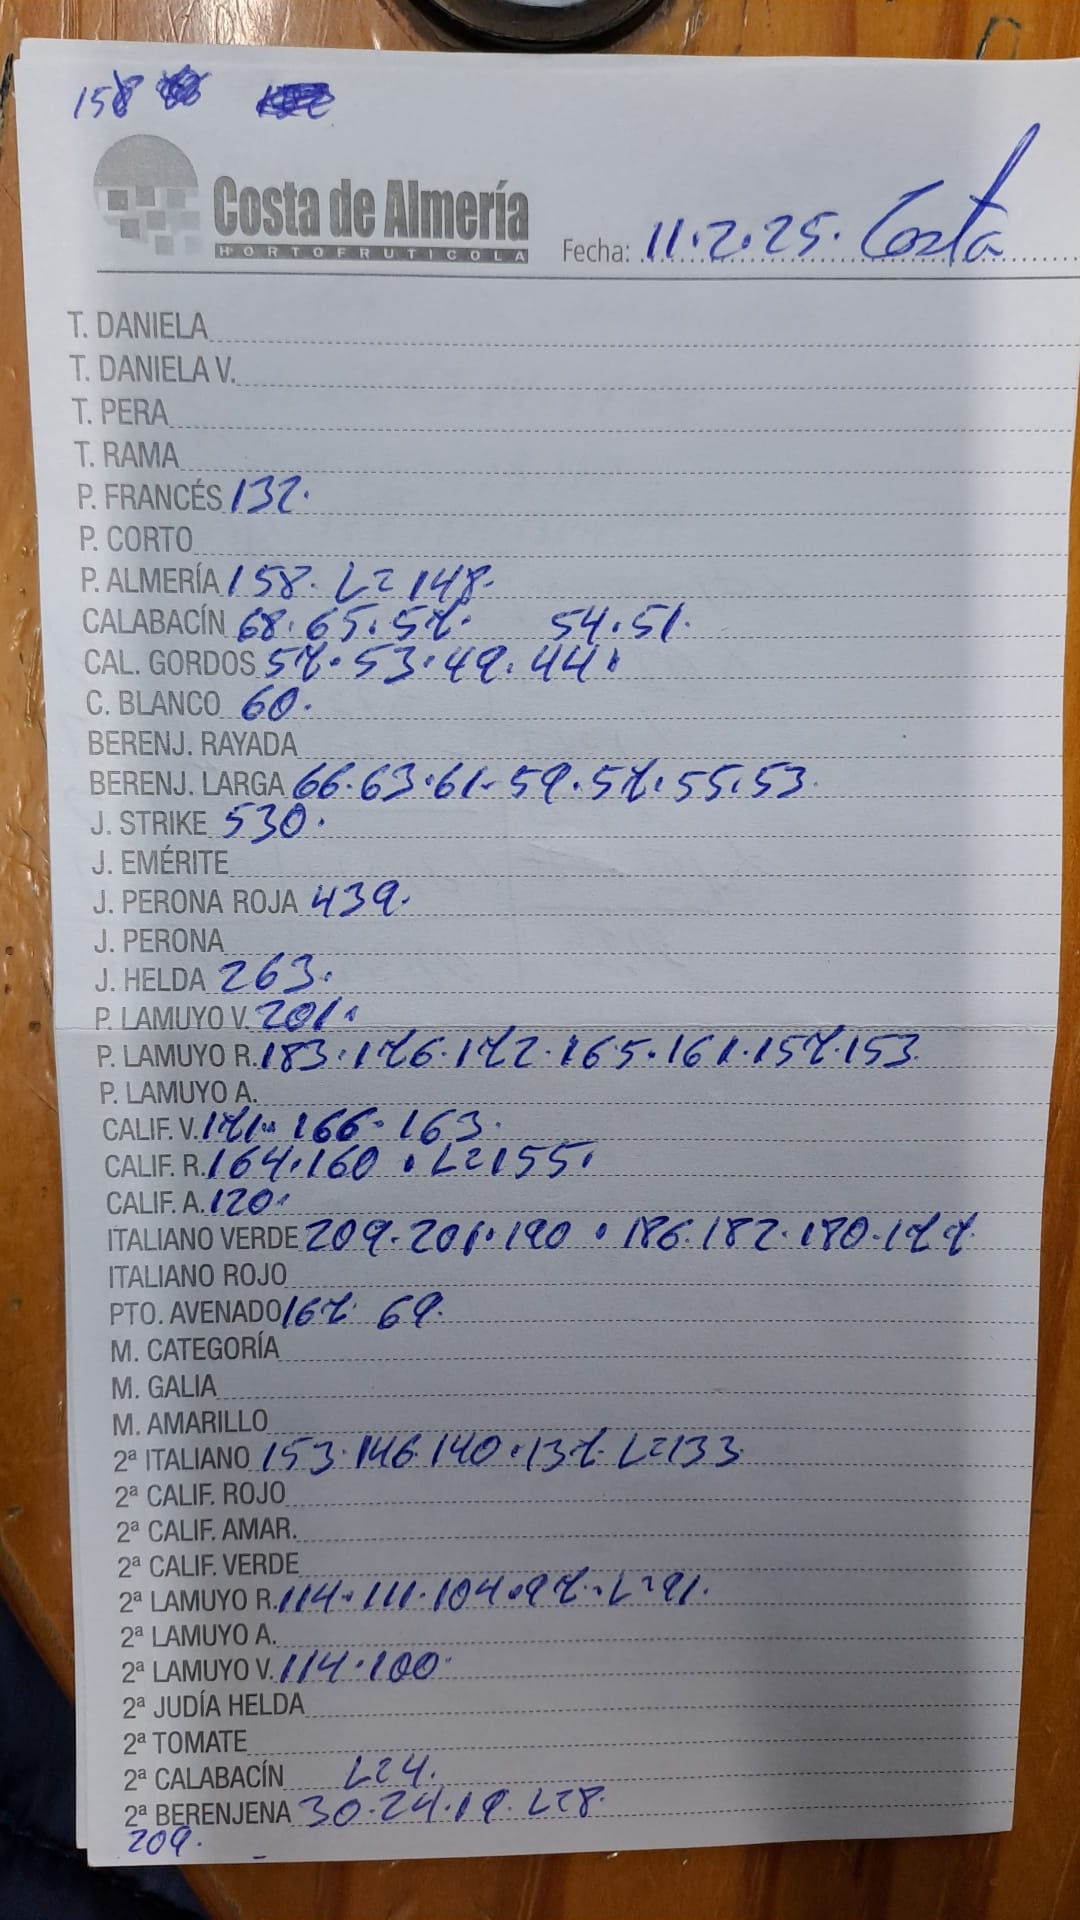 158
Costa de Almería
HORTOFRUTICOLA
Fecha: 11.2.25. Costa
T. DANIELA
T. DANIELA V.
T. PERA
T. RAMA
P. FRANCÉS 132.
P. CORTO
P. ALMERÍA 158. L=148.
CALABACÍN 68.65.57. 54.51.
CAL. GORDOS 57.53.49.44.
C. BLANCO 60.
BERENJ. RAYADA
BERENJ. LARGA 66.63.61.59.57.55.53.
J. STRIKE 530.
J. EMÉRITE
J. PERONA ROJA 439.
J. PERONA
J. HELDA 263.
P. LAMUYO V. 201.
P. LAMUYO R. 183.176.172.165.161.157.153.
P. LAMUYO A.
CALIF. V. 171. 166. 163.
CALIF. R. 164.160. L=155.
CALIF. A. 120.
ITALIANO VERDE 209.201.190.186.182.180.177.
ITALIANO ROJO
PTO. AVENADO 167. 69.
M. CATEGORÍA
M. GALIA
M. AMARILLO
2ª ITALIANO 153.146.140.137. L=133
2ª CALIF. ROJO
2ª CALIF. AMAR.
2ª CALIF. VERDE
2ª LAMUYO R. 114.111.104.97. L=91.
2ª LAMUYO A.
2ª LAMUYO V. 114.100.
2ª JUDÍA HELDA
2ª TOMATE
2ª CALABACÍN L=4.
2ª BERENJENA 30.24.19. L=8.
209.